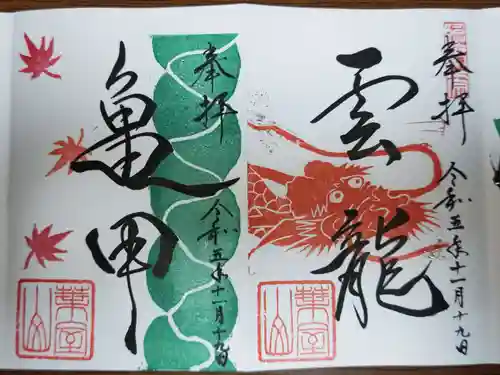 奉拝
雲龍
令和五年十一月十九日
奉拝
亀甲
令和五年十一月十九日